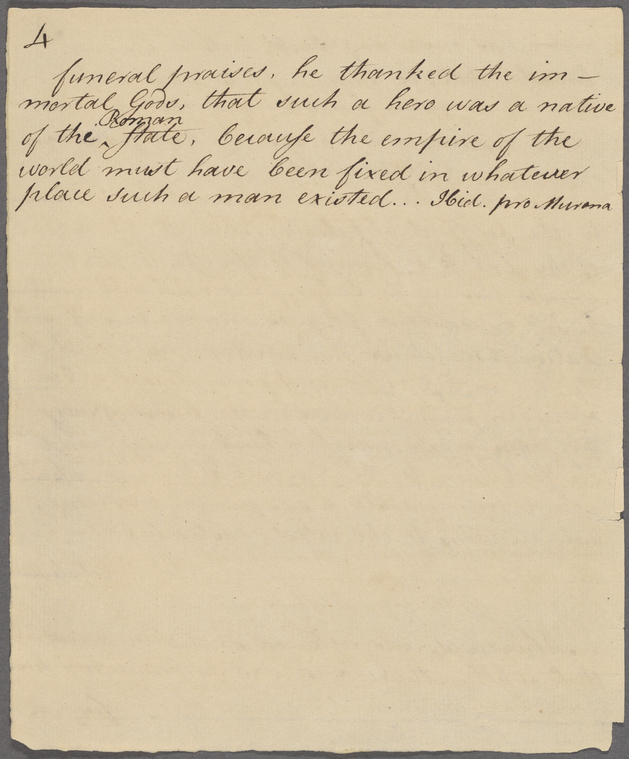 4
funeral praises, he thanked the im-
mortal Gods, that such a hero was a native
of the Roman State, because the empire of the
world must have been fixed in whatever
place such a man existed... Ibid. pro Murena